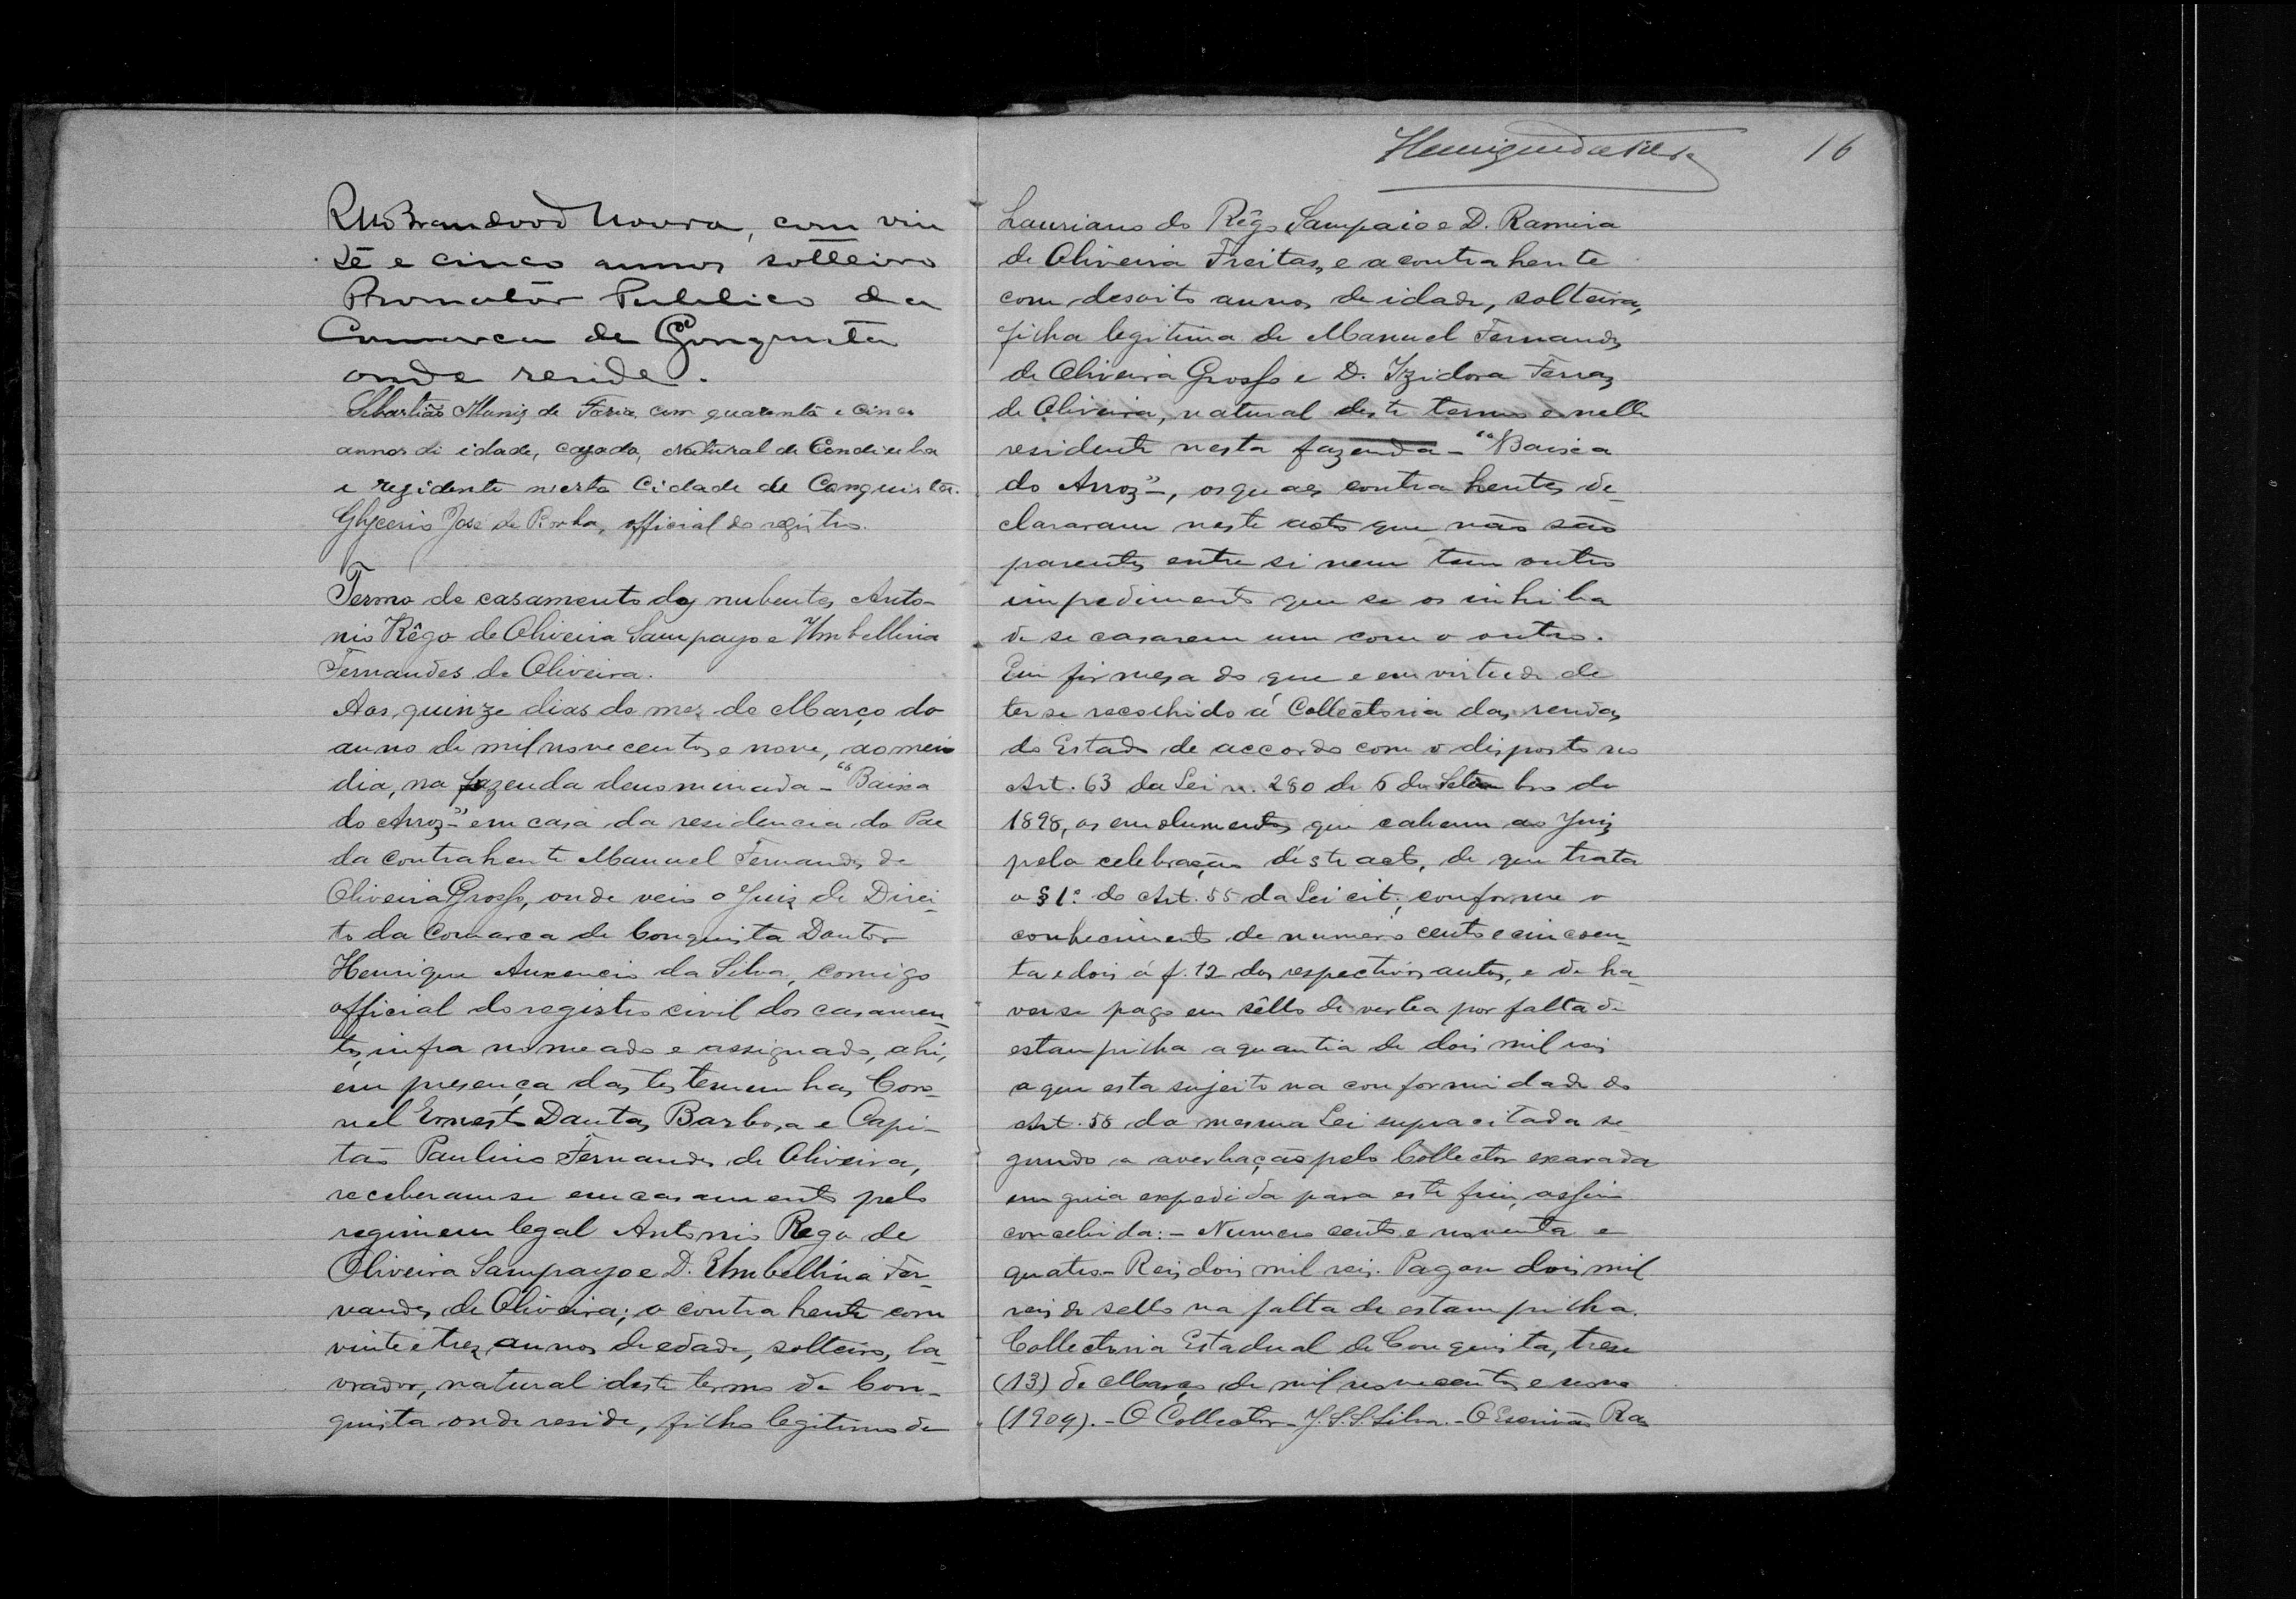 Moura, com vin
te e cinco annos solteiro
Promotôr Publico da
Comarca de Conquista
onde reside.
Sebastião Muniz de Faria com quarenta e cinco
annos di idade, cazado, Natural de Condeuba
e rezidente nesta Cidade de Conquista.
Glycerio José da Rocha, official do registro.
Termo de casamento dos nubentes Anto-
nio Rêgo de Oliveira Sampayo e Umbellina
Fernandes de Oliveira.
Aos quinze dias do mes de Março do
anno de mil novecentos e nove, ao meio
dia, na fazenda denominada - "Baixa
do Arroz"- em casa da residencia do Pae
da contrahente Manuel Fernandes de
Oliveira Grosso, onde veio o Juiz de Direi-
to da Comarca de Conquista Doutor
Henrique Auxencio da Silva, comigo
official do registro civil dos casamen-
tos, infra nomeado e assignado, ahi,
em presença das testemunhas Coro-
nel Ernesto Dantas Barbosa e Capi-
tão Paulino Fernandes de Oliveira,
receberam-se em casamento pelo
regimem legal Antonio Rego de
Oliveira Sampayo e D. Umbellina Fer-
nandes de Oliveira; o contrahente com
vinte e tres annos de edade, solteiro, la-
vrador, natural deste termo de Con-
quista onde reside, filho legitimo de
16
Lauriano do Rêgo Sampaio e D. Ramira
de Oliveira Freitas, e a contrahente
com desoito annos de idade, solteira,
filha legitima de Manuel Fernandes
de Oliveira Grosso e D. Izidora Ferraz
de Oliveira, natural deste termo e nelle
residente nesta fazenda - "Baixa
do Arroz"-, os quaes contrahentes de-
clararam neste acto que não são
parentes entre si nem tem outro
impedimento que se os inhiba
de se casarem um com o outro.
Em firmesa do que e em virtude de
ter se recolhido á Collectoria das rendas
do Estado de accordo com o disposto no
Art. 63 da Lei n. 280 de 6 de Setembro de
1898, os emolumentos que cabem ao Juiz
pela celebração déste acto, de que trata
o § 1º do Art. 55 da Lei cit., conforme o
conhecimento de numero cento e cincoen-
ta e dois á f. 12 dos respectivos autos, e de ha-
ver se pago em sêllo de verba por falta de
estampilha a quantia de dois mil reis
a que esta sujeito na conformidade do
Art. 58 da mesma Lei supracitada se-
gundo a averbação pelo Collector exarada
em guia expedida para este fim, assim
concebida: - Numero cento e noventa e
quatro - Reis dois mil reis. Pagou dois mil
reis de sello na falta de estampilha.
Collectoria Estadual de Conquista, trese
(13) de Março de mil novecentos e nove
(1909). - O Collector - J. S. S. Silva. - O Escrivão Ra